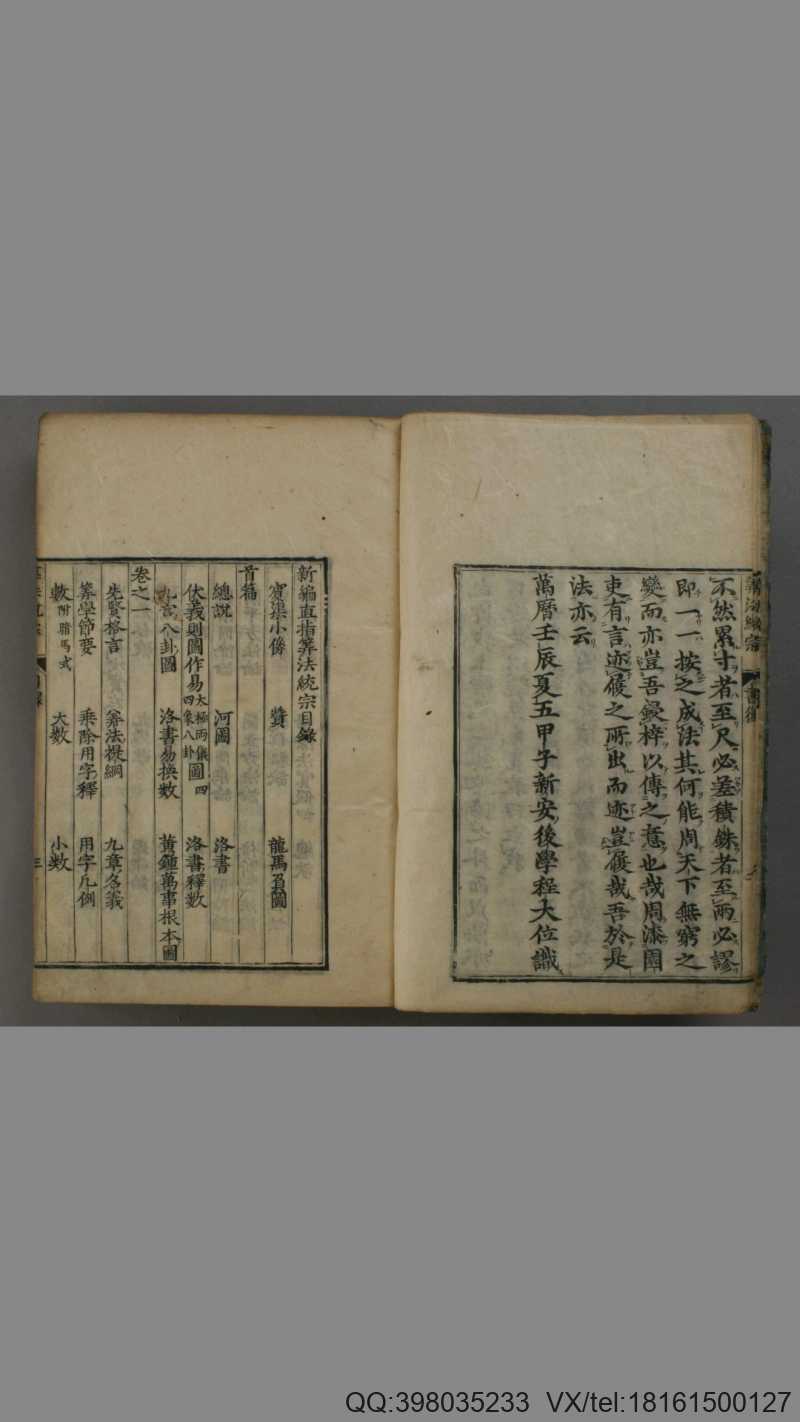 不然累寸者至尺必差積銖者至兩必謬
即一一按之成法其何能周天下無窮之
變而亦豈吾鋟梓以傳之意也哉周漆園
吏有言迹履之所出而迹豈履哉吾於是
法亦云
萬曆壬辰夏五甲子新安後學程大位識
新編直指筭法統宗目錄
賓渠小像 贊 龍馬負圖
首篇
總說 河圖 洛書
伏羲則圖作易 太極兩儀四象八卦圖 四 洛書釋數
九宮八卦圖 洛書易換數 黃鍾萬事根本圖
卷之一
先賢格言 筭法提綱 九章名義
筭學節要 乘除用字釋 用字凡例
數 附暗馬式 大數 小數
QQ:398035233 VX/tel:18161500127